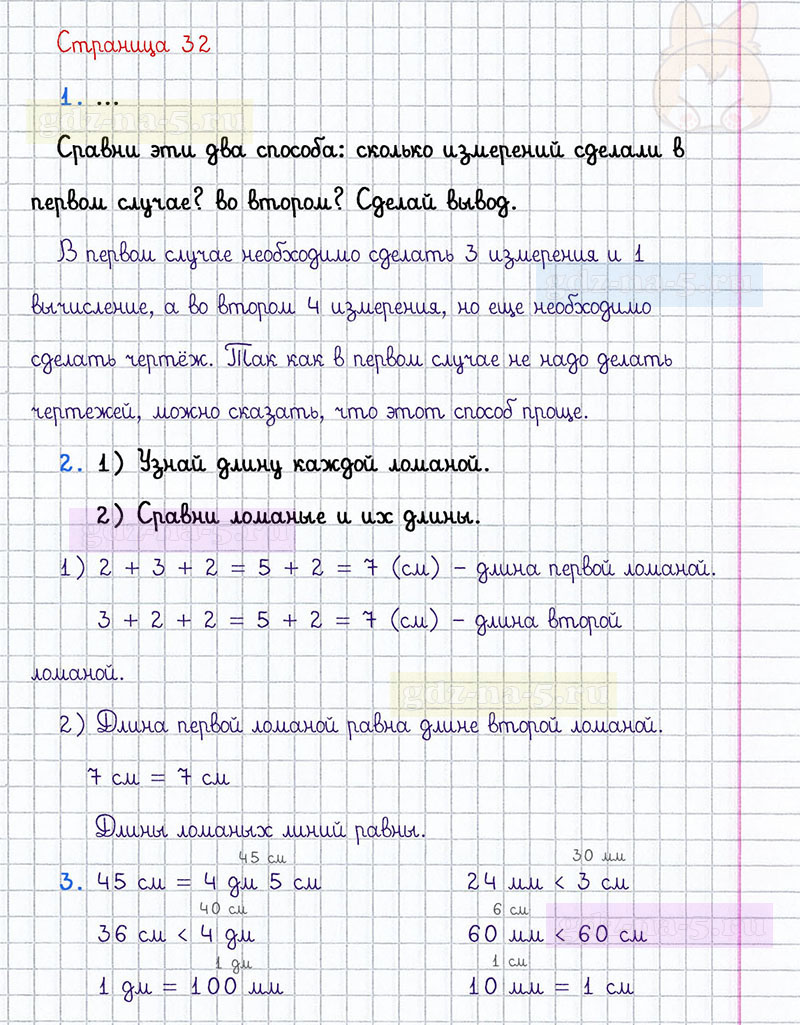 Страница 32
1. ...
gdz-na-5.ru
Сравни эти два способа: сколько измерений сделали в
первом случае? во втором? Сделай вывод.
В первом случае необходимо сделать 3 измерения и 1
gdz-na-5.ru
вычисление, а во втором 4 измерения, но еще необходимо
сделать чертёж. Так как в первом случае не надо делать
чертежей, можно сказать, что этот способ проще.
2. 1) Узнай длину каждой ломаной.
2) Сравни ломаные и их длины.
gdz-na-5.ru
1) 2 + 3 + 2 = 5 + 2 = 7 (см) – длина первой ломаной.
3 + 2 + 2 = 5 + 2 = 7 (см) – длина второй
ломаной.
gdz-na-5.ru
2) Длина первой ломаной равна длине второй ломаной.
7 см = 7 см
Длины ломаных линий равны.
45 см 30 мм
3. 45 см = 4 дм 5 см 24 мм < 3 см
40 см 6 см
36 см < 4 дм 60 мм < 60 см
gdz-na-5.ru
1 дм 1 см
1 дм = 100 мм 10 мм = 1 см